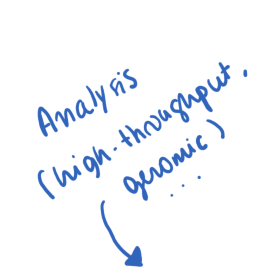 Analysis
(high-throughput,
genomic)
...